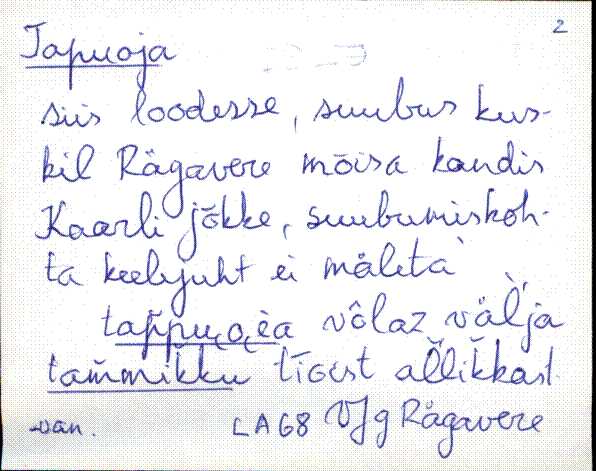 2
Tapuoja
siis loodesse, suubus kus-
kil Rägavere mõisa kandis
Kaarli jõkke, suubumiskoh-
ta keelejuht ei mäleta
tap̆pu͔o͔èa võlaz väl̀'ja
tam̆mikku tīest al̆lik̆kast
-van. LA68 VJg Rägavere